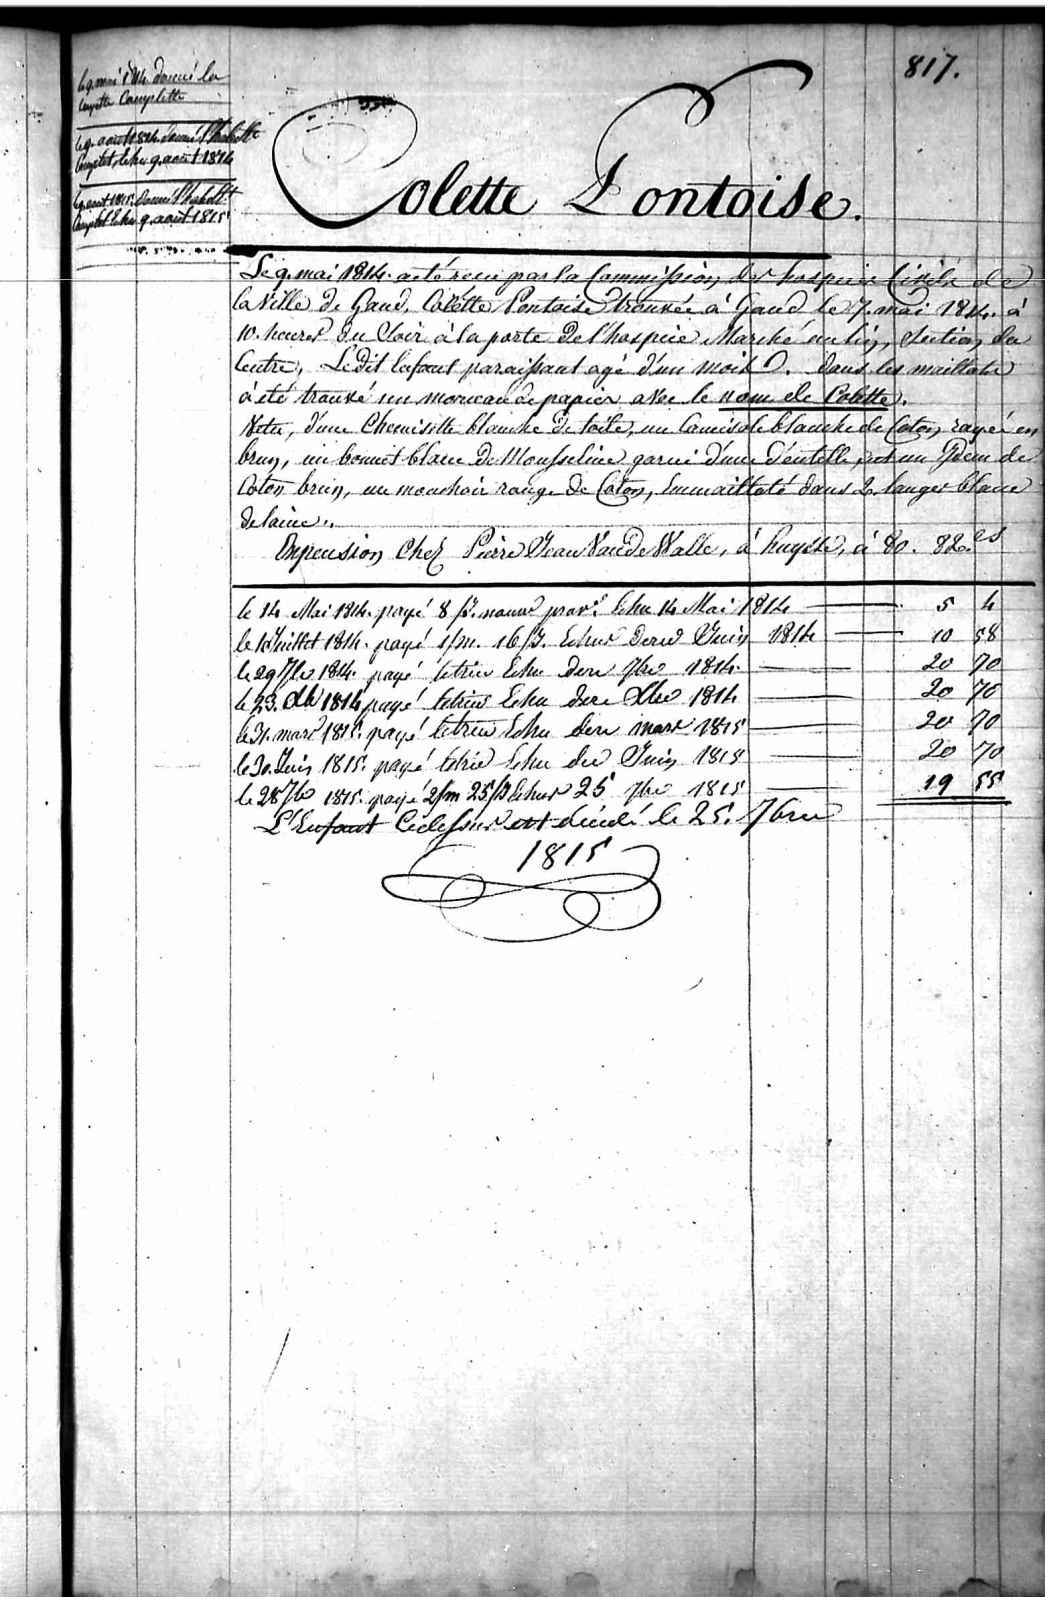 817.
le 9. mai 1814 donné la
layette Complette
le 9. aout 1814 donné l'habillt
Complet, echu 9. aout 1814
le 9. aout 1815. donné l'habillt
Complet Echu 9. aout 1815
Colette Pontoise.
Le 9. mai 1814. a été reçu par la Commission des hospices Civils de
la Ville de Gand, Colette Pontoise trouvée à Gand le 7. mai 1814. à
10. heures du Soir à la porte de l'hospice Marché au lin, Section du
Centre, Ledit Enfant paraissant agé d'un mois. dans les maillots
à été trouvé un morceau de papier avec le nom de Colette.
Vetu, d'une Chemisette blanche de toile, une Camisole blanche de Coton rayée en
brun, un bonnet blanc de Mousseline garni d'une dentelle, et un Idem de
Coton brun, un mouchoir rouge de Coton, Emmailloté dans 2. langes blancs
de laine.
En pension Chez Pierre Jean Van de Walle, à huysse, à 80. 82.es
le 14 Mai 1814. payé 8 fs. nourr prov.e Echu 14 Mai 1814 5 4
le 1 Juillet 1814. payé 1/m. 16/J. Echus dere Juin 1814 10 58
le 29 7bre 1814. payé letrire Echu dere 7bre 1814. 20 70
le 23. Xbre 1814 payé letrire Echu dere Xbre 1814 20 70
le 31. mars 1815. payé letrire Echu dere mars 1815 20 70
le 30. Juin 1815. payé letrire Echu dere Juin 1815 20 70
le 28 7bre 1815. payé 2/m 25/J Echus 25 7bre 1815 19 55
L'Enfant Cidessus est décédé le 25. 7bre
1815